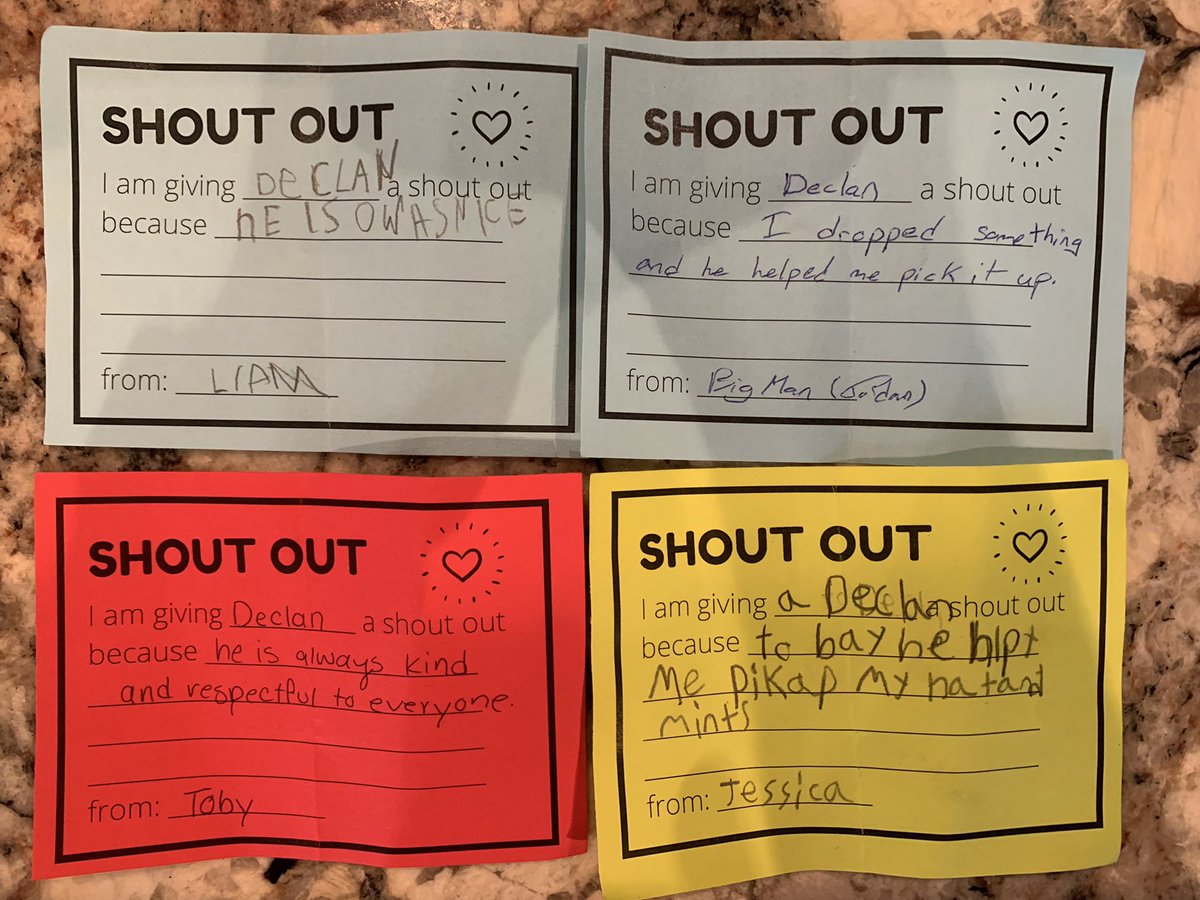 SHOUT OUT
I am giving DeCLAN a shout out
because hE IS OWASNICE
from: LIAM
SHOUT OUT
I am giving Declan a shout out
because I dropped something
and he helped me pick it up.
from: Big Man (Jordan)
SHOUT OUT
I am giving Declan a shout out
because he is always kind
and respectful to everyone.
from: Toby
SHOUT OUT
I am giving a Declan a shout out
because to bay he hlpt
Me piKap My natand
mints
from: Jessica